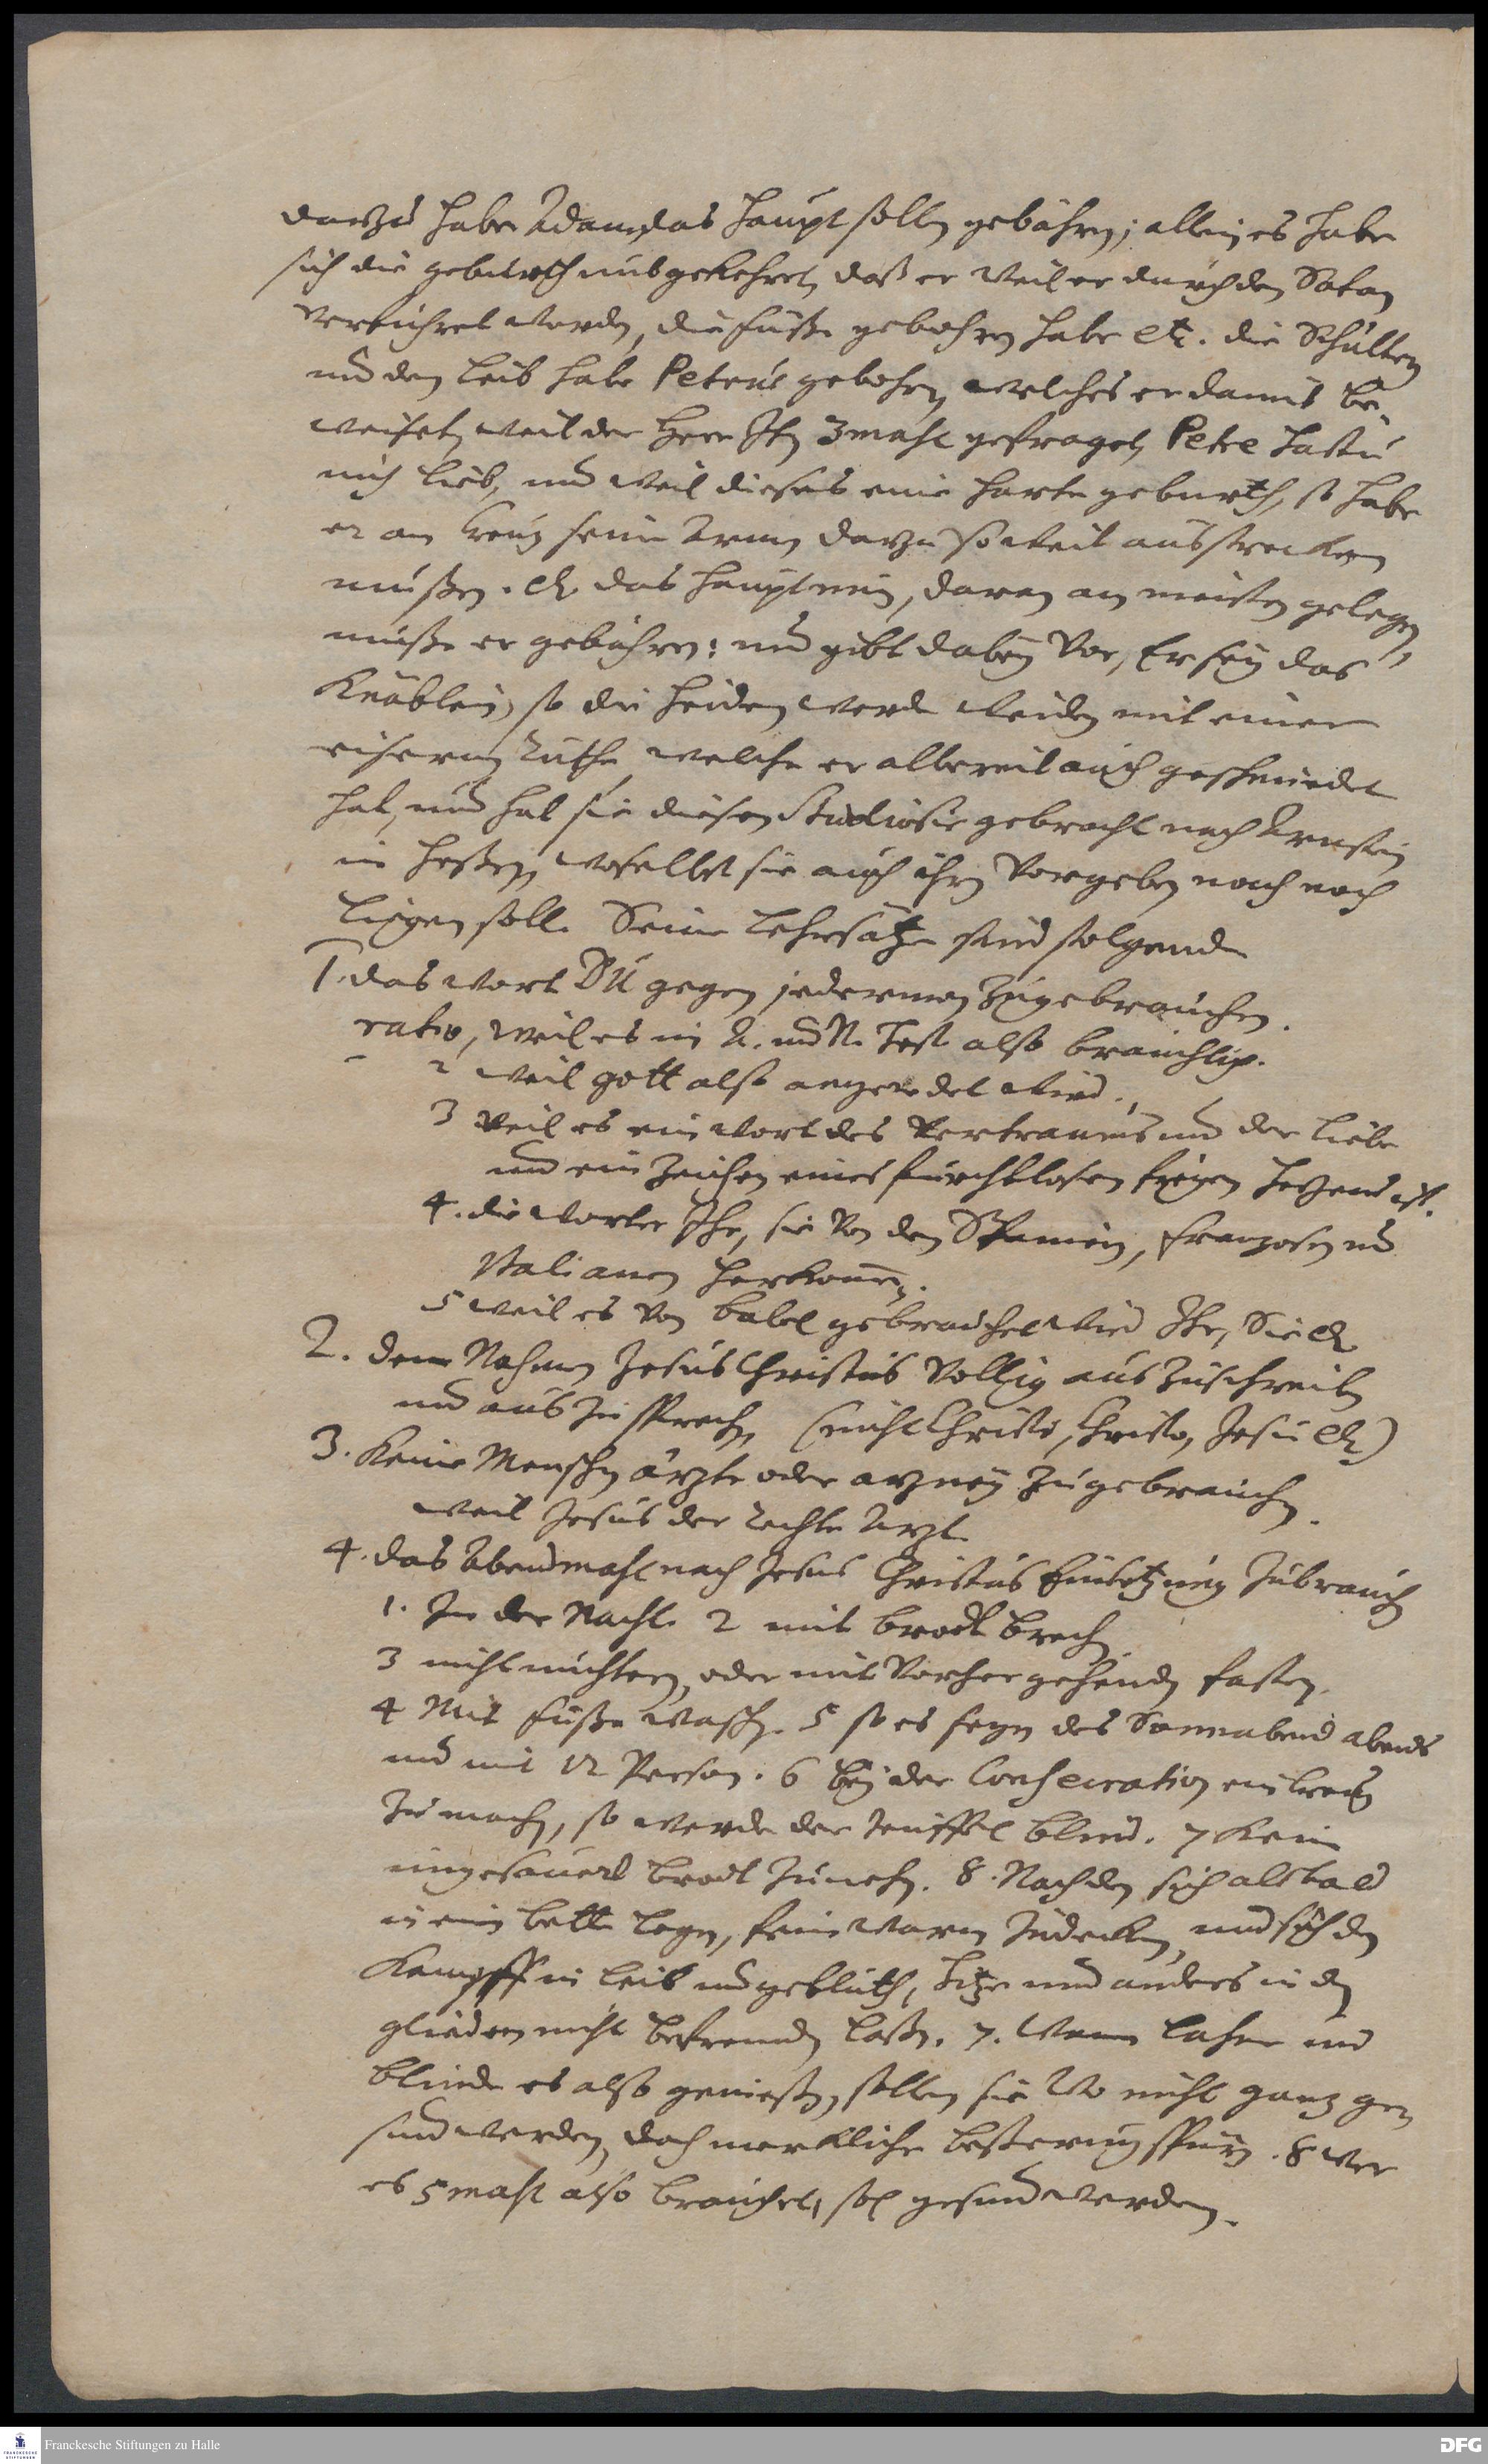 darzu habe Adam das Haupt sollen gebähren; allein es habe
sich die geburth umbgekehret, daß er weil er durch den Satan
verführet worden, die füße gebohren habe etc. die Schulter
und den Leib habe Petrus gebohren, welches er damit be-
weiset, weil der Herr Ihn 3mahl gefraget, Petre hastu
mich lieb, und weil dieses eine harte geburth, so habe
er am Creutz seine Arme darzu so weit ausstrecken
müßen. etc. das Haupt nun, daran am meisten gelegen,
müße er gebähren: und gibt dabey vor, Er sey das
Knäblein, so die Heiden werde weiden mit einer
eisernen Ruthe, welche er allbereit auch geschmiedet
hat, und hat sie diesen Studiosus gebracht nach
in Heßen, woselbst sie auch ihren Vorgeben nach noch
liegen soll. Seine Lehrsätze sind folgende
1. das wort DU gegen jederman zugebrauchen.
ratio, weil es in A. und N. Test. also brauchlich.
2 weil gott also angeredet wird.
3 weil es ein wort des Vertrauens und der Liebe
und ein Zeichen eines furchtlosen freyen Hertzens ist.
4. die worter Ihr, sie von den Spaniern, Frantzosen und
Italianern herkommen.
5 weil es von Babel gebrauchet wird Ihr, Sie etc.
2. den Nahmen Jesus Christus völlig auszuschreiben
und auszusprechen (nicht Christi, Christo, Jesu etc.)
3. Keine Menschen ärzte oder artzney zugebrauchen.
weil Jesus der rechte Artzt.
4. das Abendmahl nach Jesus Christus Einsetzung zubrauchen
1. In der Nacht. 2 mit brodt brechen.
3 nicht nüchtern, oder mit vorhergehenden fasten.
4 Mit füße waschen. 5 so es seyn des Sonnabend abends
und mit 12 Person. 6 bey der Consecration ein Creutz
zu machen, so werde der Teuffel blind. 7 Kein
ungesäuert brodt zunehmen. 8. Nach dem sich alsbald
in ein bette legen, fein warm zudecken, und sich den
Kampff in Leib und geblüth, hitze und anders in den
gliedern nicht befremden laßen. 7. Wann lahme und
blinde es also genießen, sollen sie wo nicht gantz ge-
sund werden, doch merckliche beßerung spüren. 8 wer
es 5mahl also brauchet, soll gesund werden.
Franckesche Stiftungen zu Halle
DFG